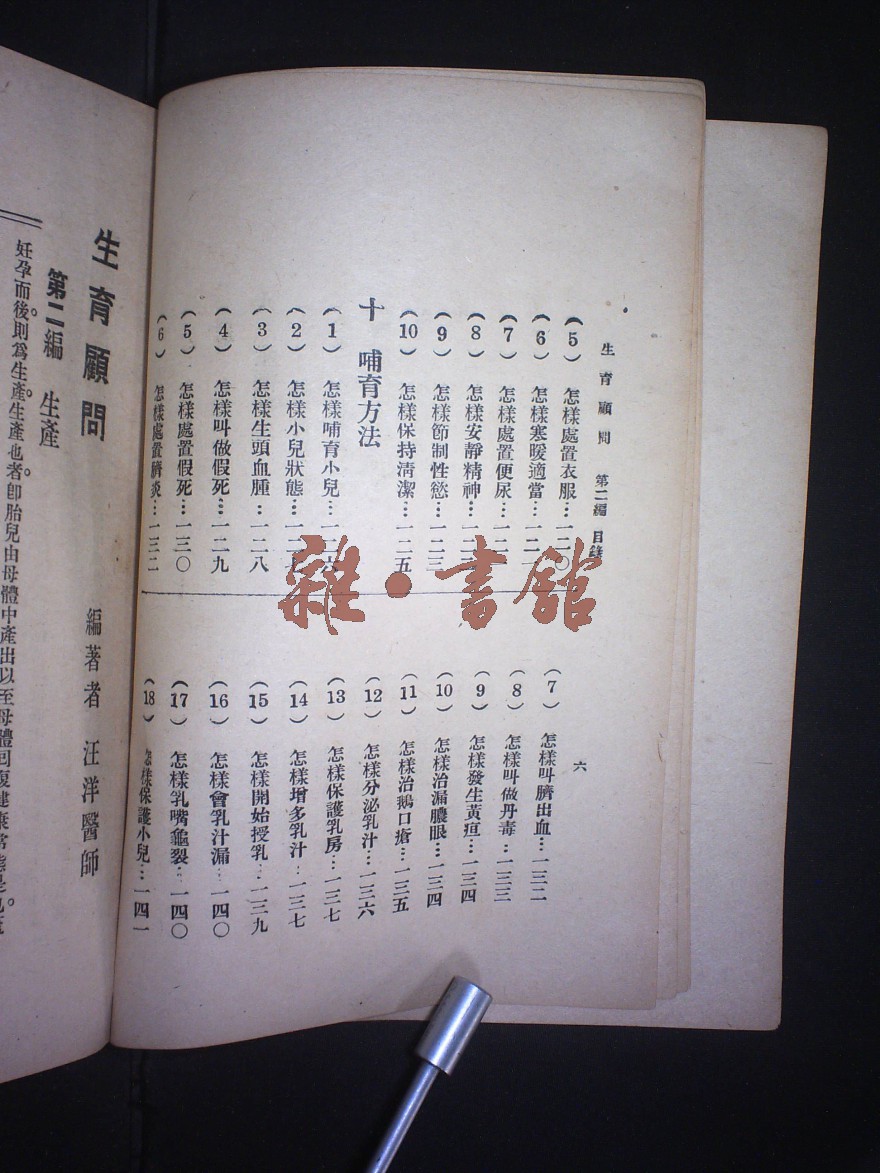 生育顧問 第二編 目錄
六
(5) 怎樣處置衣服…一二〇
(6) 怎樣寒暖適當…一二
(7) 怎樣處置便尿…一二
(8) 怎樣安靜精神…一二
(9) 怎樣節制性慾…一二三
(10) 怎樣保持淸潔…一二五
十 哺育方法
(1) 怎樣哺育小兒…一二六
(2) 怎樣小兒狀態…一二
(3) 怎樣生頭血腫…一二八
(4) 怎樣叫做假死…一二九
(5) 怎樣處置假死…一三〇
(6) 怎樣處置臍炎…一三二
(7) 怎樣叫臍出血…一三二
(8) 怎樣叫做丹毒…一三三
(9) 怎樣發生黃疸…一三四
(10) 怎樣治漏膿眼…一三四
(11) 怎樣治鵝口瘡…一三五
(12) 怎樣分泌乳汁…一三六
(13) 怎樣保護乳房…一三七
(14) 怎樣增多乳汁…一三七
(15) 怎樣開始授乳…一三九
(16) 怎樣會乳汁漏…一四〇
(17) 怎樣乳嘴龜裂…一四〇
(18) 怎樣保護小兒…一四一
雜•書館
生育顧問
編著者 汪洋醫師
第二編 生產
妊孕而後。則爲生產。生產也者。卽胎兒由母體中產出以至母體回復健康常態是也。